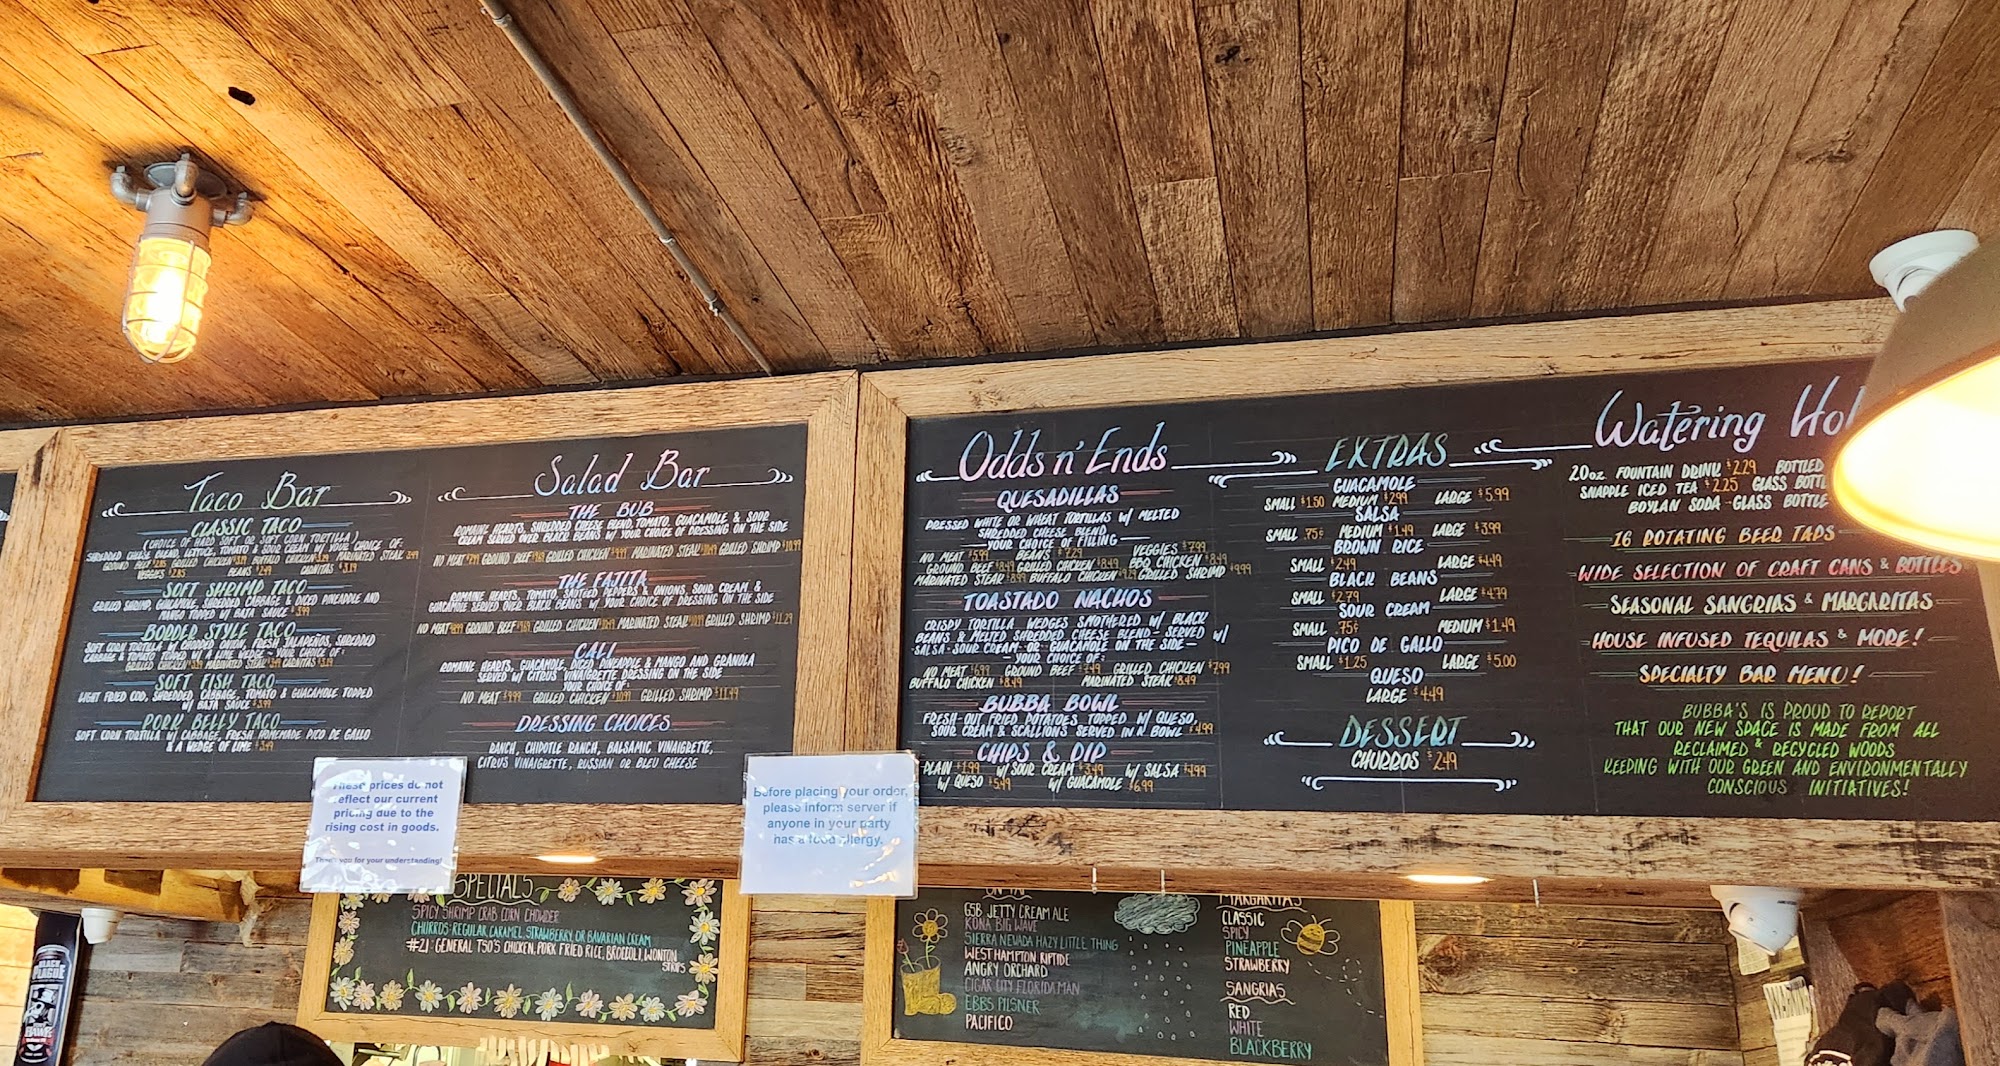 Taco Bar
CLASSIC TACO
(CHOICE OF HARD SOFT OR SOFT CORN TORTILLA)
SHREDDED CHEESE BLEND, LETTUCE, TOMATO & SOUR CREAM W/ YOUR CHOICE OF:
GROUND BEEF $2.85 GRILLED CHICKEN $3.19 BUFFALO CHICKEN $3.19 MARINATED STEAK
VEGGIES $2.85 BEANS $2.49 CARNITAS $3.19
SOFT SHRIMP TACO
GRILLED SHRIMP, GUACAMOLE, SHREDDED CABBAGE & DICED PINEAPPLE AND
MANGO TOPPED W/ BAJA SAUCE $3.99
BORDER STYLE TACO
SOFT CORN TORTILLA W/ CHOPPED ONION, FRESH JALAPEÑOS, SHREDDED
CABBAGE & TOMATO TOPPED W/ A LIME WEDGE - YOUR CHOICE OF:
GRILLED CHICKEN $3.19 MARINATED STEAK CARNITAS $3.19
SOFT FISH TACO
LIGHT FRIED COD, SHREDDED CABBAGE, TOMATO & GUACAMOLE TOPPED
W/ BAJA SAUCE $3.99
PORK BELLY TACO
SOFT CORN TORTILLA W/ CABBAGE, FRESH HOMEMADE PICO DE GALLO
& A WEDGE OF LIME $3.49
Salad Bar
THE BUB
ROMAINE HEARTS, SHREDDED CHEESE BLEND, TOMATO, GUACAMOLE & SOUR
CREAM SERVED OVER BLACK BEANS W/ YOUR CHOICE OF DRESSING ON THE SIDE
NO MEAT GROUND BEEF GRILLED CHICKEN MARINATED STEAK GRILLED SHRIMP $10.99
THE FAJITA
ROMAINE HEARTS, TOMATO, SAUTÉED PEPPERS & ONIONS, SOUR CREAM &
GUACAMOLE SERVED OVER BLACK BEANS W/ YOUR CHOICE OF DRESSING ON THE SIDE
NO MEAT GROUND BEEF GRILLED CHICKEN MARINATED STEAK GRILLED SHRIMP $11.29
CALI
ROMAINE HEARTS, GUACAMOLE, DICED PINEAPPLE & MANGO AND GRANOLA
SERVED W/ CITRUS VINAIGRETTE DRESSING ON THE SIDE
YOUR CHOICE OF:
NO MEAT $9.99 GRILLED CHICKEN $10.99 GRILLED SHRIMP $11.49
DRESSING CHOICES
RANCH, CHIPOTLE RANCH, BALSAMIC VINAIGRETTE,
CITRUS VINAIGRETTE, RUSSIAN OR BLEU CHEESE
Odds n' Ends
QUESADILLAS
PRESSED WHITE OR WHEAT TORTILLAS W/ MELTED
SHREDDED CHEESE BLEND
YOUR CHOICE OF FILLING
NO MEAT $5.99 BEANS $7.29 VEGGIES $7.99
GROUND BEEF $8.49 GRILLED CHICKEN $8.49 BBQ CHICKEN $8.49
MARINATED STEAK $8.99 BUFFALO CHICKEN GRILLED SHRIMP $9.99
TOASTADO NACHOS
CRISPY TORTILLA WEDGES SMOTHERED W/ BLACK
BEANS & MELTED SHREDDED CHEESE BLEND - SERVED W/
-SALSA - SOUR CREAM - OR - GUACAMOLE ON THE SIDE-
- YOUR CHOICE OF:
NO MEAT $6.99 GROUND BEEF $7.49 GRILLED CHICKEN $7.99
BUFFALO CHICKEN $8.49 MARINATED STEAK $8.49
BUBBA BOWL
FRESH-CUT FRIED POTATOES TOPPED W/ QUESO,
SOUR CREAM & SCALLIONS SERVED IN A BOWL $4.99
CHIPS & DIP
PLAIN $1.99 W/ SOUR CREAM $3.49 W/ SALSA $4.99
W/ QUESO $5.49 W/ GUACAMOLE $6.99
EXTRAS
GUACAMOLE
SMALL $1.50 MEDIUM $2.99 LARGE $5.99
SALSA
SMALL .75¢ MEDIUM $1.49 LARGE $3.99
BROWN RICE
SMALL $2.49 LARGE $4.49
BLACK BEANS
SMALL $2.79 LARGE $4.79
SOUR CREAM
SMALL .75¢ MEDIUM $1.49
PICO DE GALLO
SMALL $1.25 LARGE $5.00
QUESO
LARGE $4.49
DESSERT
CHURROS $2.49
Watering Hol
20oz FOUNTAIN DRINK $2.29 BOTTLED
SNAPPLE ICED TEA $2.25 GLASS BOTTL
BOYLAN SODA - GLASS BOTTLE
16 ROTATING BEER TAPS
WIDE SELECTION OF CRAFT CANS & BOTTLES
SEASONAL SANGRIAS & MARGARITAS
HOUSE INFUSED TEQUILAS & MORE!
SPECIALTY BAR MENU!
BUBBA'S IS PROUD TO REPORT
THAT OUR NEW SPACE IS MADE FROM ALL
RECLAIMED & RECYCLED WOODS
KEEPING WITH OUR GREEN AND ENVIRONMENTALLY
CONSCIOUS INITIATIVES!
These prices do not
reflect our current
pricing due to the
rising cost in goods.
Thank you for your understanding!
Before placing your order,
please inform server if
anyone in your party
has a food allergy.
SPECIALS
SPICY SHRIMP CRAB CORN CHOWDER
CHURROS: REGULAR, CARAMEL, STRAWBERRY, OR BAVARIAN CREAM
#21: GENERAL TSO'S CHICKEN, PORK FRIED RICE, BROCCOLI, WONTON
STRIPS
ON TAP
GSB JETTY CREAM ALE
KONA BIG WAVE
SIERRA NEVADA HAZY LITTLE THING
WESTHAMPTON RIPTIDE
ANGRY ORCHARD
CIGAR CITY FLORIDA MAN
EBBS PILSNER
PACIFICO
MARGARITAS
CLASSIC
SPICY
PINEAPPLE
STRAWBERRY
SANGRIAS
RED
WHITE
BLACKBERRY
BLACK
PLAGUE